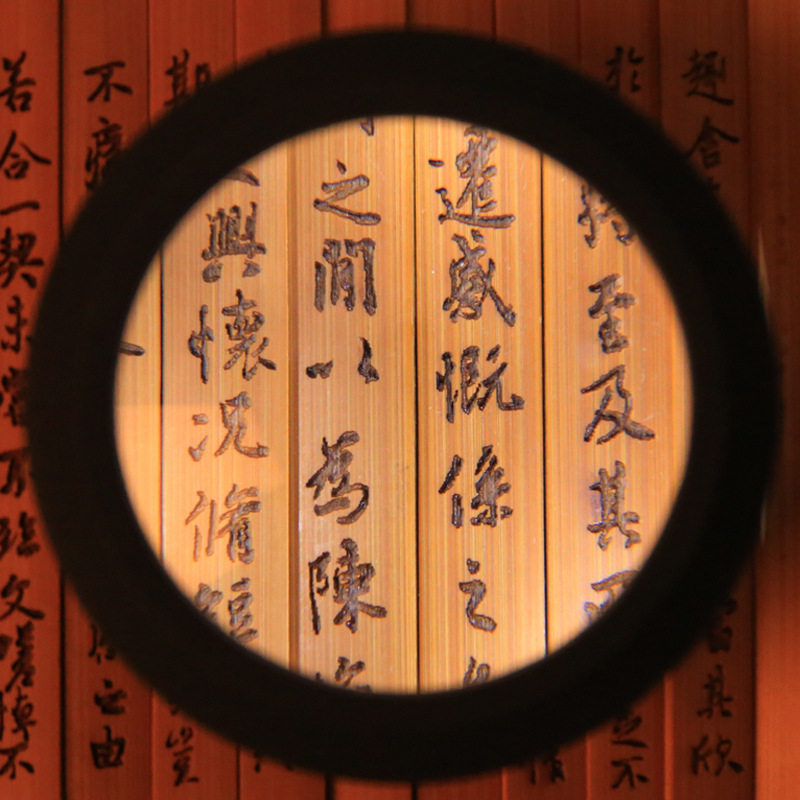 趣舍其欣
於至及其不
遷感慨係之
之閒以為陳
興懷况脩短
期豈
不痛之由
若合一契未嘗不臨文嗟悼不